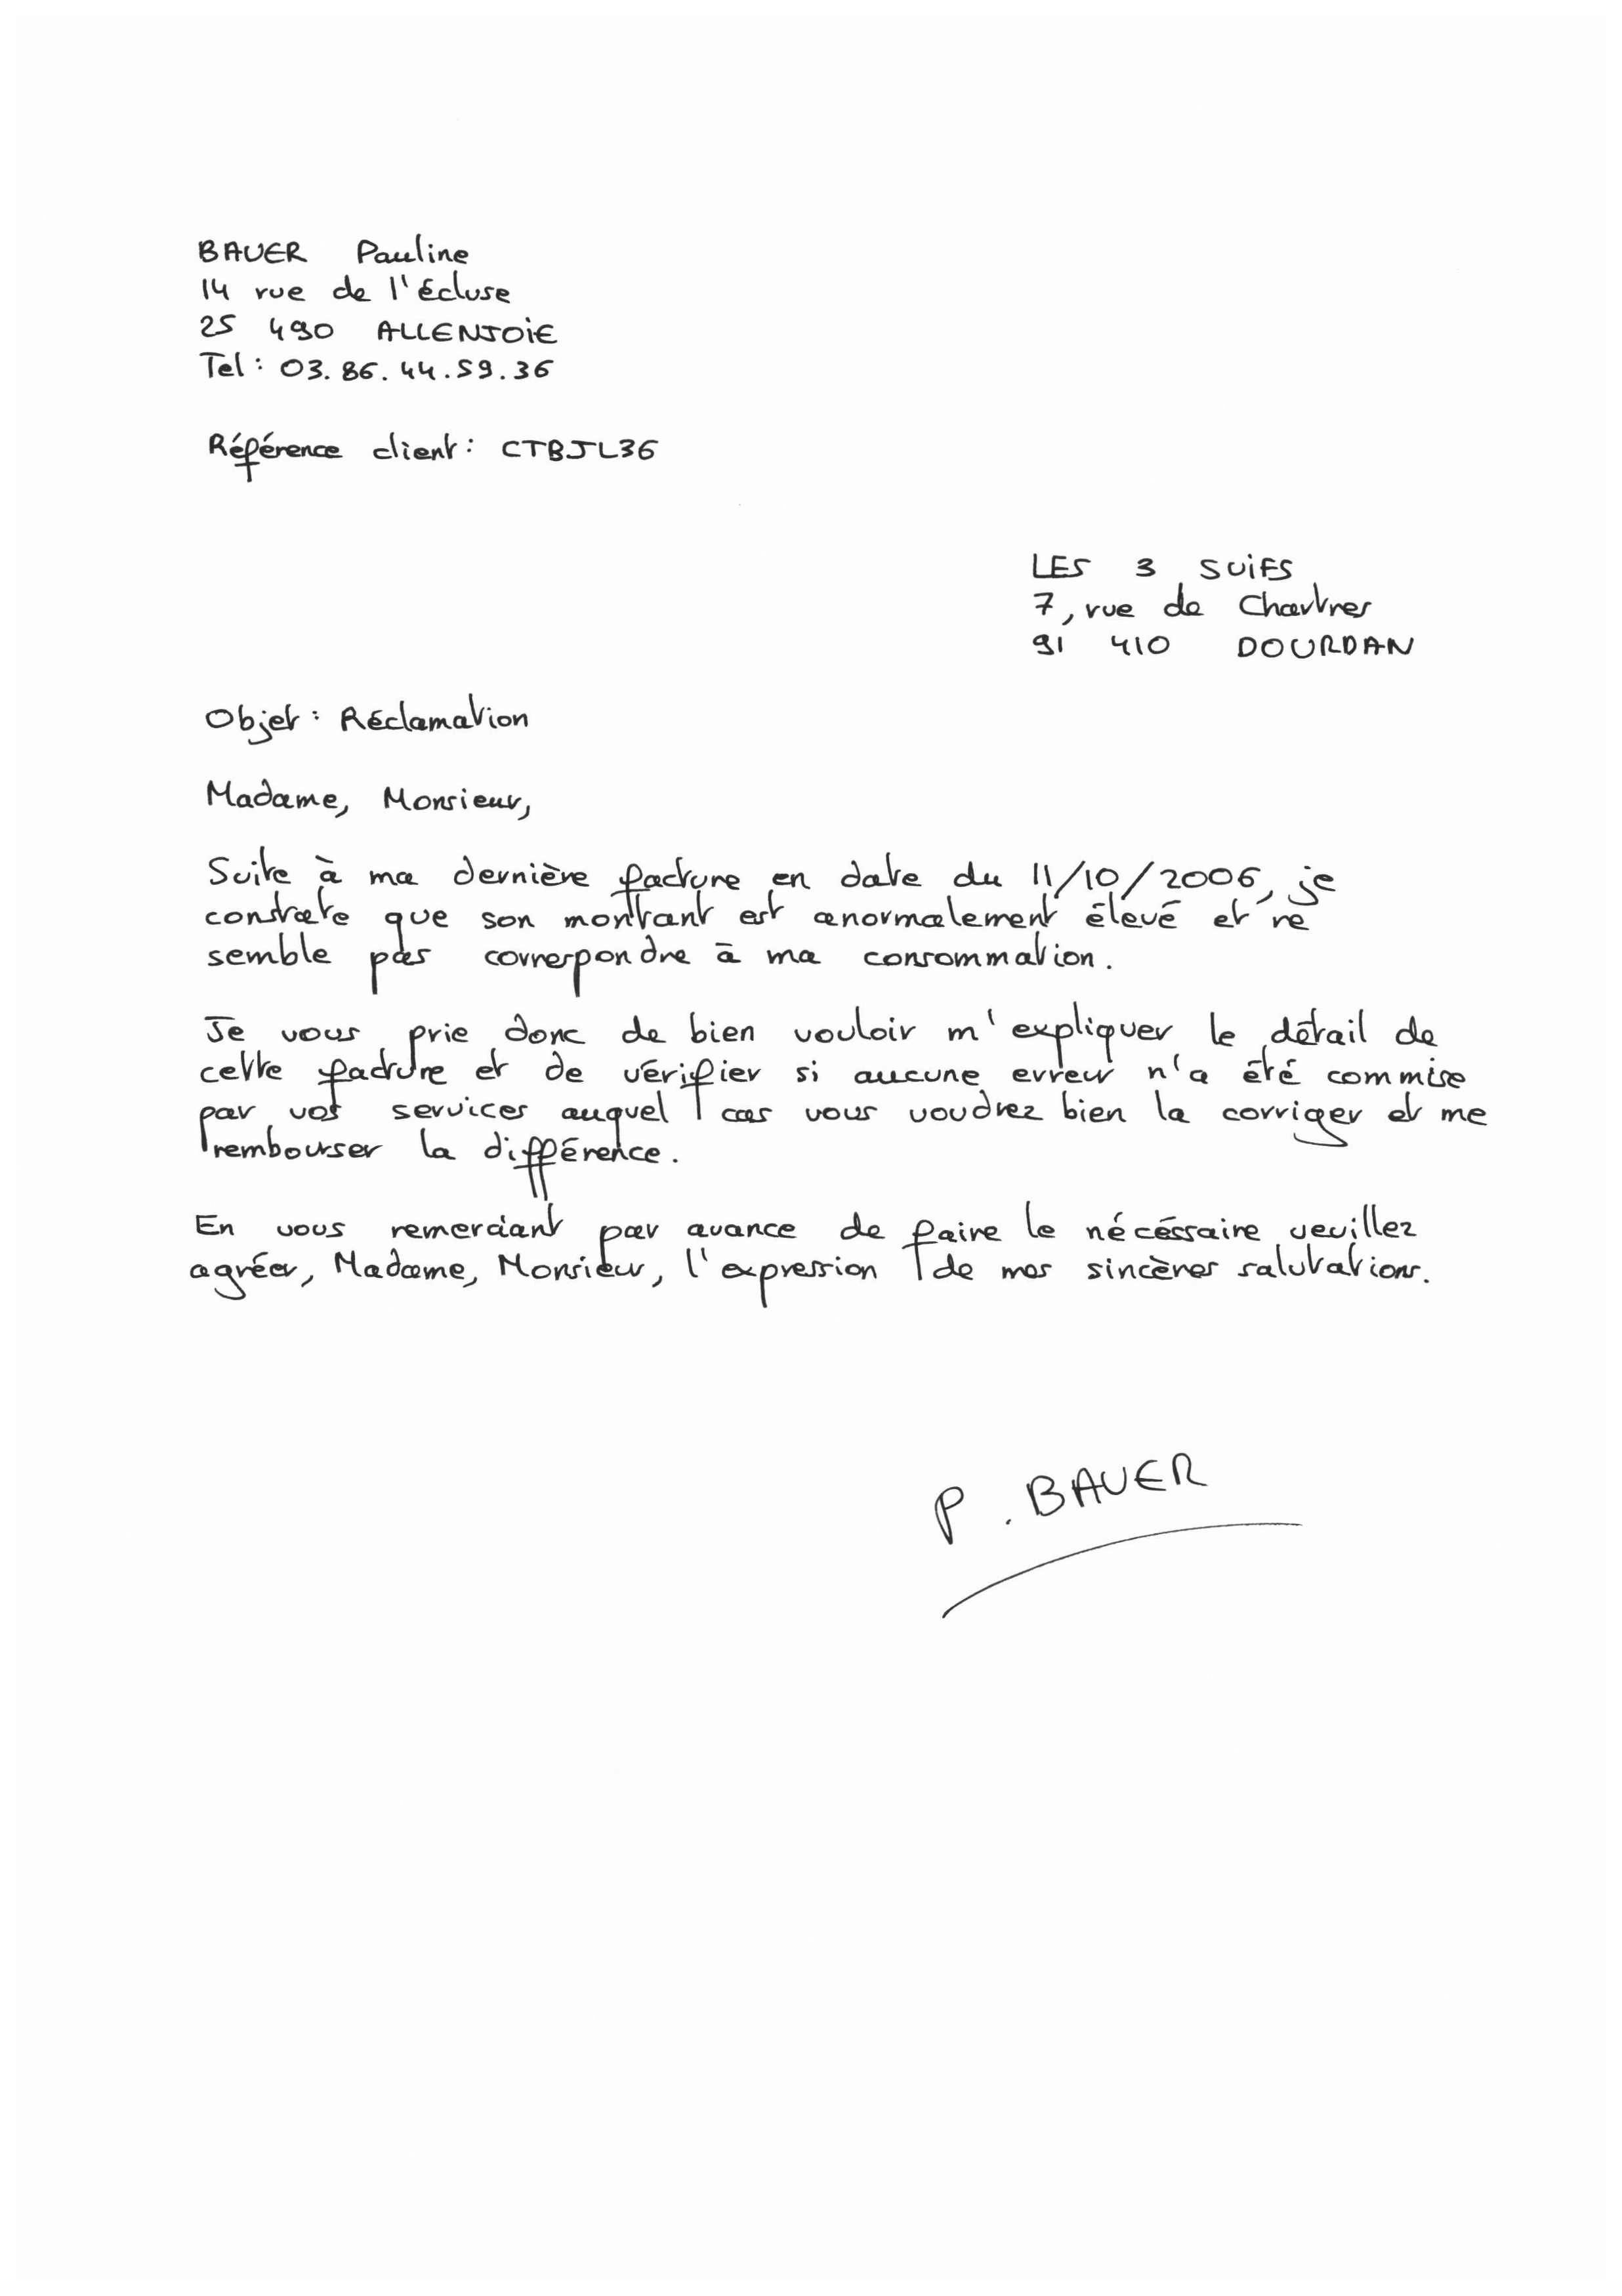 BAUER Pauline
14 rue de l'écluse
25 490 ALLENJOIE
Tel : 03.86.44.59.36
Référence client : CTBJL36
LES 3 SUIFS
7, rue de Chartres
91 410 DOURDAN
Objet : Réclamation
Madame, Monsieur,
Suite à ma dernière facture en date du 11/10/2006, je
constate que son montant est anormalement élevé et ne
semble pas correspondre à ma consommation.
Je vous prie donc de bien vouloir m'expliquer le détail de
cette facture et de vérifier si aucune erreur n'a été commise
par vos services auquel cas vous voudrez bien la corriger et me
rembourser la différence.
En vous remerciant par avance de faire le nécéssaire veuillez
agréer, Madame, Monsieur, l'expression de mes sincères salutations.
P. BAUER